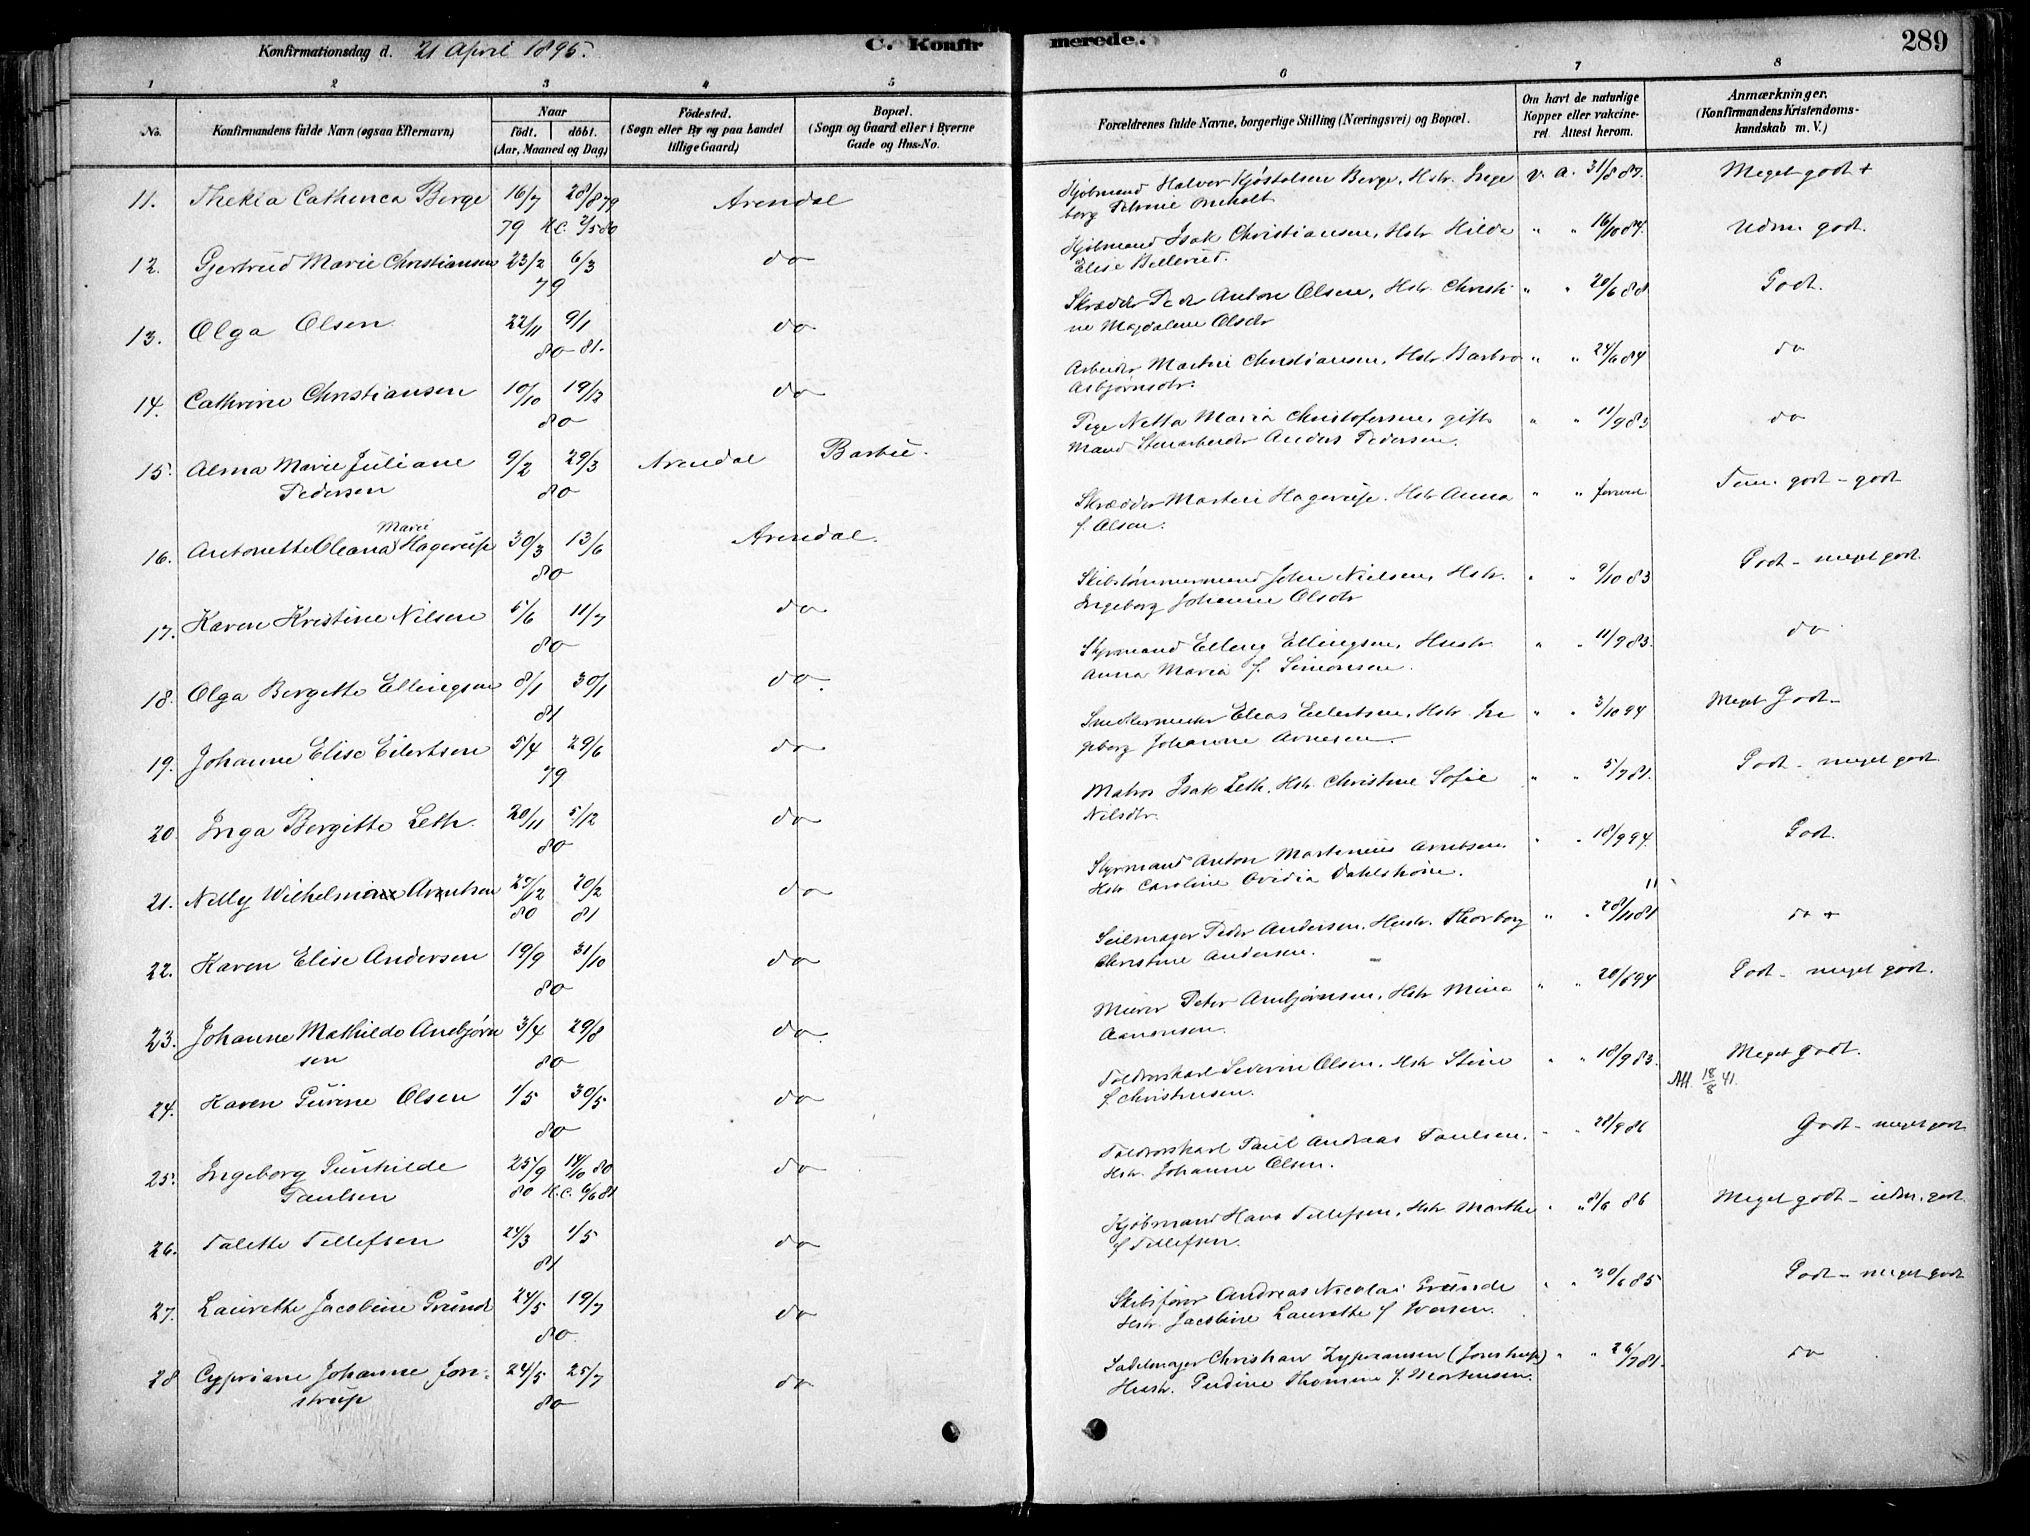 Konfirmationsdag d. 21 April 1895.
C. Konfir
merede.
289
1 2 3 4 5 6 7 8
No.
Konfirmandens fulde Navn (ogsaa Efternavn)
Naar
født. døbt.
(Aar, Maaned og Dag)
Fødested.
(Sogn eller By og paa Landet
tillige Gaard)
Bopæl.
(Sogn og Gaard eller i Byerne
Gade og Hus-No.
Forældrenes fulde Navne, borgerlige Stilling (Næringsvei) og Bopæl.
Om havt de naturlige
Kopper eller vakcine-
ret. Attest herom.
Anmærkninger.
(Konfirmandens Kristendoms-
kundskab m. V.)
11. Thekla Cathinca Berge 16/7 28/8 79 Arendal
79 H.C. 2/5 80
Kjøbmand Halvor Kjøstolsen Berge, Hstr. Inge v. a. 31/8 87. Meget godt +
borg Petrine Omholt
12. Gjertrud Marie Christiansen 23/2 6/3 do
79
Kjøbmand Isak Christiansen, Hstr Hilda " " 16/10 84. Udm. godt.
Elise Bellerud.
13. Olga Olsen 22/11 9/1 do
80 81.
Skrædder Peder Anton Olsen, Hstr. Christi " " 20/6 88 Godt.
ne Magdalene Olsdr
14. Cathrine Christiansen 10/10 19/12 do
80
Arbeider Martin Christiansen, Hstr Barbro " " 24/6 84 do
Asbjørnsdr.
15. Alma Marie Juliane 9/2 29/3 Arendal Barbu.
Pedersen 80
Pige Netta Maria Christofersen, gift " " 11/9 83 do
Mand Stenarbeider Anders Pedersen.
16. Antonette Oleana Marie Hagerup 30/3 13/6 Arendal.
80
Skrædder Martin Hagerup. Hstr Anna " " Tem. godt - godt
f. Olsen.
17. Karen Kristine Nilsen 5/6 11/7 do
80
Skibstømmermand John Nielsen, Hstr. " " 9/10 83 Godt - meget godt.
Ingeborg Johanne Olsdr
18. Olga Bergitte Ellingsen 8/1 30/1 do.
81
Styrmand Elling Ellingsen, Hustr. " " 11/9 83. do
Anna Maria f. Simonsen.
19. Johanne Elise Eilertsen 5/4 29/6 do
79
Snedkermester Elias Eilertsen, Hstr. In " " 3/10 94 Meget Godt -
geborg Johanne Arnesen
20. Inga Bergitte Leth. 20/11 5/12 do
80
Matros Isak Leth. Hstr. Christine Sofie " " 5/7 81. Godt - meget godt.
Nilsdtr.
21. Nelly Wilhelmine Arntsen 20/2 do
80 81
Styrmand Anton Martinius Arntsen. " " 18/9 94. Godt.
Hstr Caroline Ovidia
22. Karen Elise Andersen 19/9 31/10 do
80
11
Seilmager Peder Andersen, Hustr. Thorborg " " 28/11 81 do +
Christine Andersen.
23. Johanne Mathilde Anebjørn 3/4 29/8 do.
sen 80
Murer Peter Anebjørnsen, Hstr Mina " " 20/6 94 Godt - meget godt.
Aanonsen.
24. Karen Guvine Olsen 1/5 30/5 do
80
Toldrorskarl Severin Olsen. Hstr Stine " " 18/9 83. Meget godt.
f. Christensen. Att. 18/8 41.
25. Ingeborg Gunhilde 25/9 14/10 80 do
Paulsen 80 H.C. 6/6 81
Toldrorskarl Paul Andreas Paulsen. " " 28/9 86 Godt - meget godt
Hstr. Johanne Olsen.
26. Talette Tellefsen 24/3 1/5 do
81
Kjøbmand Hans Tellefsen, Hstr Marthe " " 8/6 86 Meget godt - udm. godt
f Tellefsen.
27. Laurette Jacobine Grunde 24/5 19/7 do
80.
Skibsfører Andreas Nicolai Grunde " " 30/6 85 Godt - meget godt
Hstr. Jacobine Laurette f Iversen.
28 Cypriane Johanne Jon- 24/5 25/7 do
strup 80
Sadelmager Christian Zypriansen (Jonstrup) " " 26/7 81. do
Hustr. Gurine Thomine f. Mortensen.